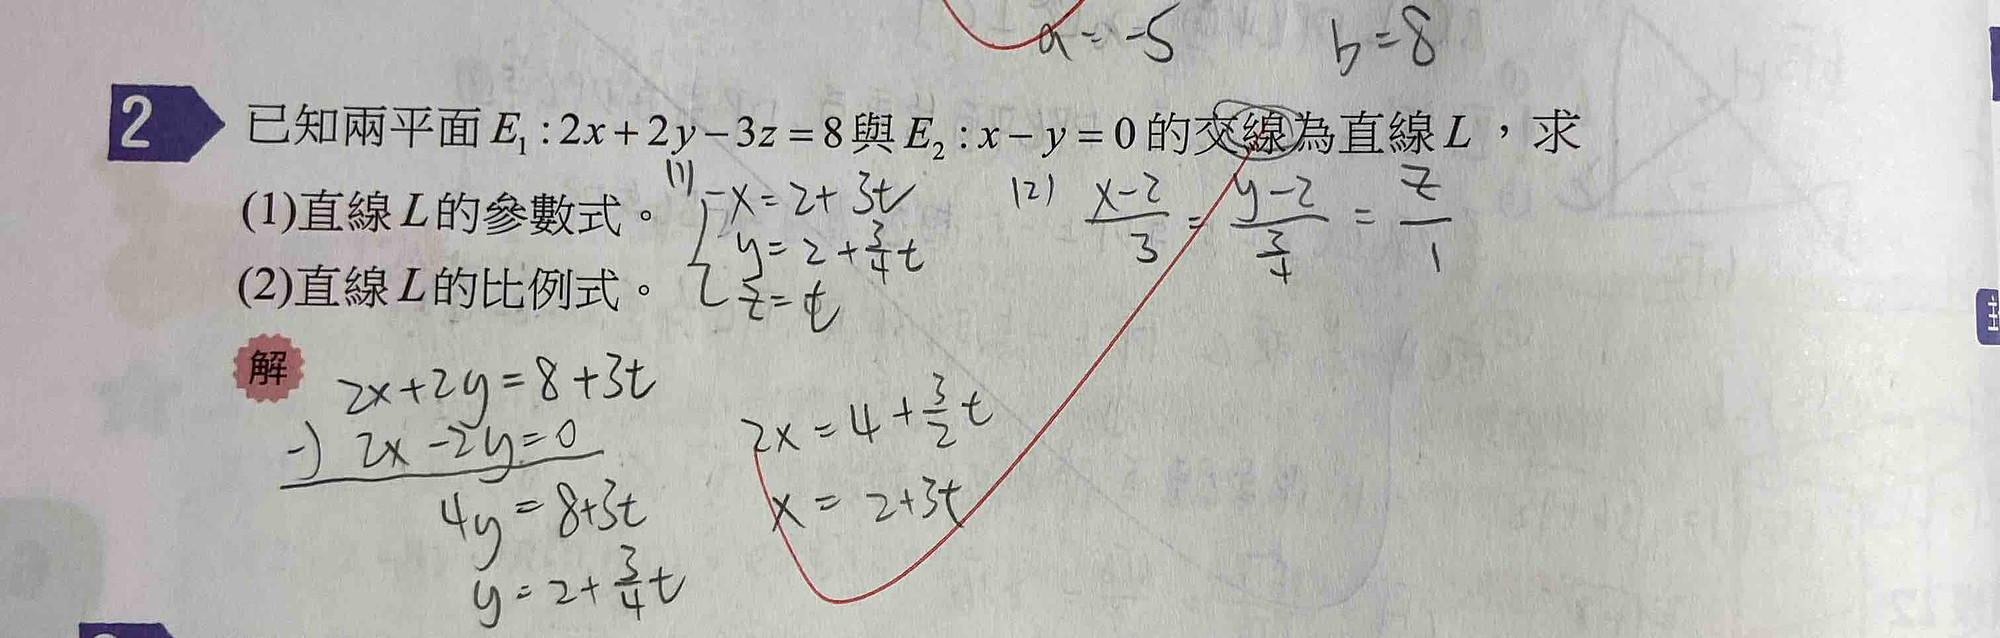 a=-5 b=8
2 已知兩平面 E₁:2x+2y-3z=8與E₂:x-y=0的交線為直線L,求
(1)直線L的參數式。
(2)直線L的比例式。
(1) x=2+3t
y=2+3/4t
z=t
(2) (x-2)/3=(y-2)/(3/4)=z/1
解
2x+2y=8+3t
-) 2x-2y=0
4y=8+3t
y=2+3/4t
2x=4+3/2t
x=2+3t